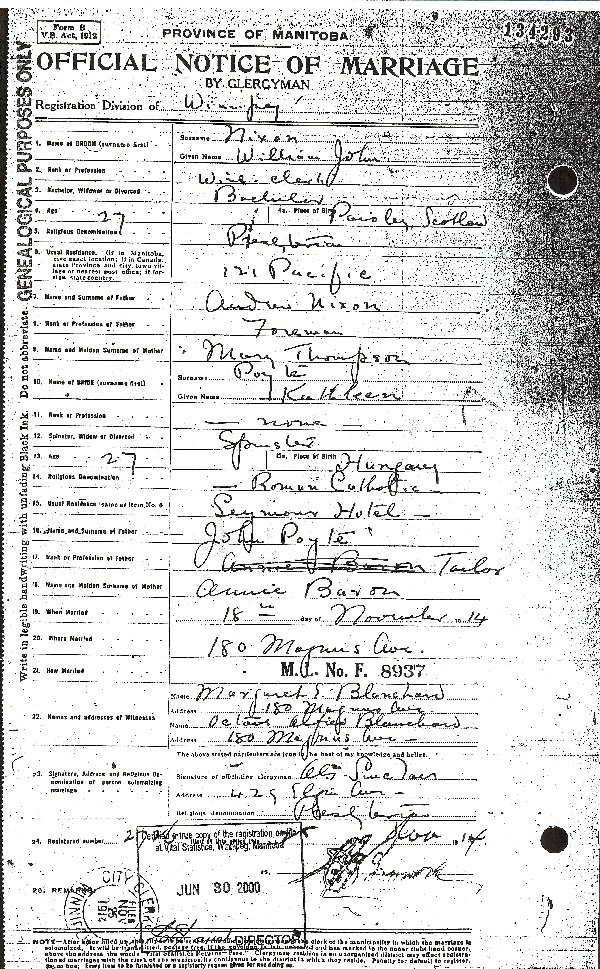 Form B
V.B. Act, 1912
PROVINCE OF MANITOBA
134293
OFFICIAL NOTICE OF MARRIAGE
BY CLERGYMAN
Registration Division of Winnipeg
GENEALOGICAL PURPOSES ONLY
Write in legible handwriting with unfading Black Ink. Do not abbreviate.
1. Name of GROOM (surname first)
Surname Nixon
Given Name William John
2. Rank or Profession
Clerk
3. Bachelor, Widower or Divorced
Bachelor
4. Age 27
4a. Place of Birth Paisley Scotland
5. Religious Denomination
Presbyterian
6. Usual Residence. (If in Manitoba, give exact location; if in Canada, state Province and City, town village or nearest post office; if foreign state country.
121 Pacific
7. Name and Surname of Father
Andrew Nixon
8. Rank or Profession of Father
Foreman
9. Name and Maiden Surname of Mother
Mary Thompson
10. Name of BRIDE (surname first)
Surname Poyte
Given Name Kathleen
11. Rank or Profession
- none -
12. Spinster, Widow or Divorced
Spinster
13. Age 27
Place of Birth Hungary
14. Religious Denomination
- Roman Catholic -
15. Usual Residence (same as Item No. 6
Seymour Hotel -
16. Name and Surname of Father
John Poyte
17. Rank or Profession of Father
Annie Baron Tailor
18. Name and Maiden Surname of Mother
Annie Baron
19. When Married
18th day of November 1914
20. Where Married
180 Magnus Ave.
21. How Married
M.L. No. F. 8937
22. Names and addresses of Witnesses
Name Margaret S. Blanchard
Address 180 Magnus Ave
Name Octave Blanchard
Address 180 Magnus Ave -
The above stated particulars are true to the best of my knowledge and belief.
23. Signature, Address and Religious Denomination of person solemnizing marriage
Signature of officiating Clergyman Sinclair
Address 429 Elgin Ave -
Religious denomination Presbyterian
24. Registered number
Nov 1914
Certified a true copy of the registration on file
at Vital Statistics, Winnipeg, Manitoba
25. REMARKS
CITY CLERK
WINNIPEG
FILED
NOV
JUN 30 2000
DIRECTOR